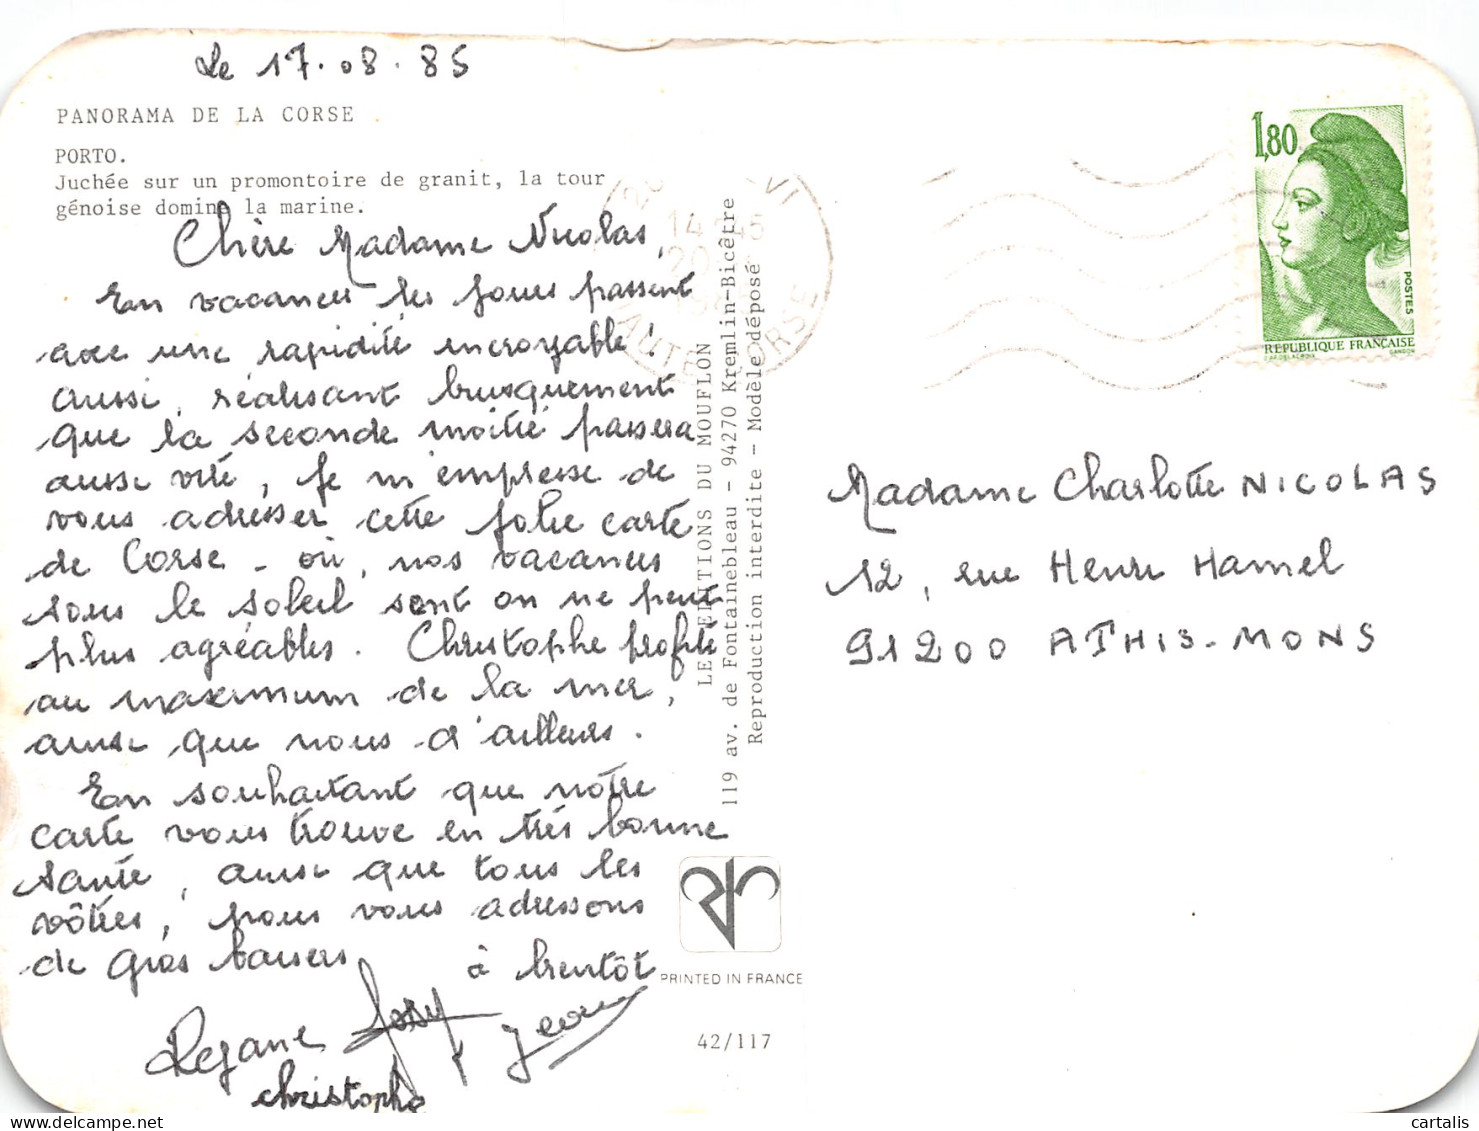 Le 17.08.85
PANORAMA DE LA CORSE
PORTO.
Juchée sur un promontoire de granit, la tour
génoise domine la marine.
Chère Madame Nicolas,
En vacances les jours passent
avec une rapidité incroyable !
aussi, réalisant brusquement
que la seconde moitié passera
aussi vite, je m'empresse de
vous adresser cette jolie carte
de Corse - où, nos vacances
sous le soleil sont on ne peut
plus agréables. Christophe profite
au maximum de la mer,
ainsi que nous d'ailleurs.
En souhaitant que notre
carte vous trouve en très bonne
santé, ainsi que tous les
vôtres, nous vous adressons
de gros baisers
à bientôt
Rejane
christophe
LES EDITIONS DU MOUFLON
119 av. de Fontainebleau - 94270 Kremlin-Bicêtre
Reproduction interdite - Modèle déposé
PRINTED IN FRANCE
42/117
14 H 45
HAUTE CORSE
1,80
POSTES
REPUBLIQUE FRANÇAISE
D'AP. DELACROIX GANDON
Madame Charlotte NICOLAS
12, rue Henri Hamel
91200 ATHIS-MONS
delcampe.net
cartalis